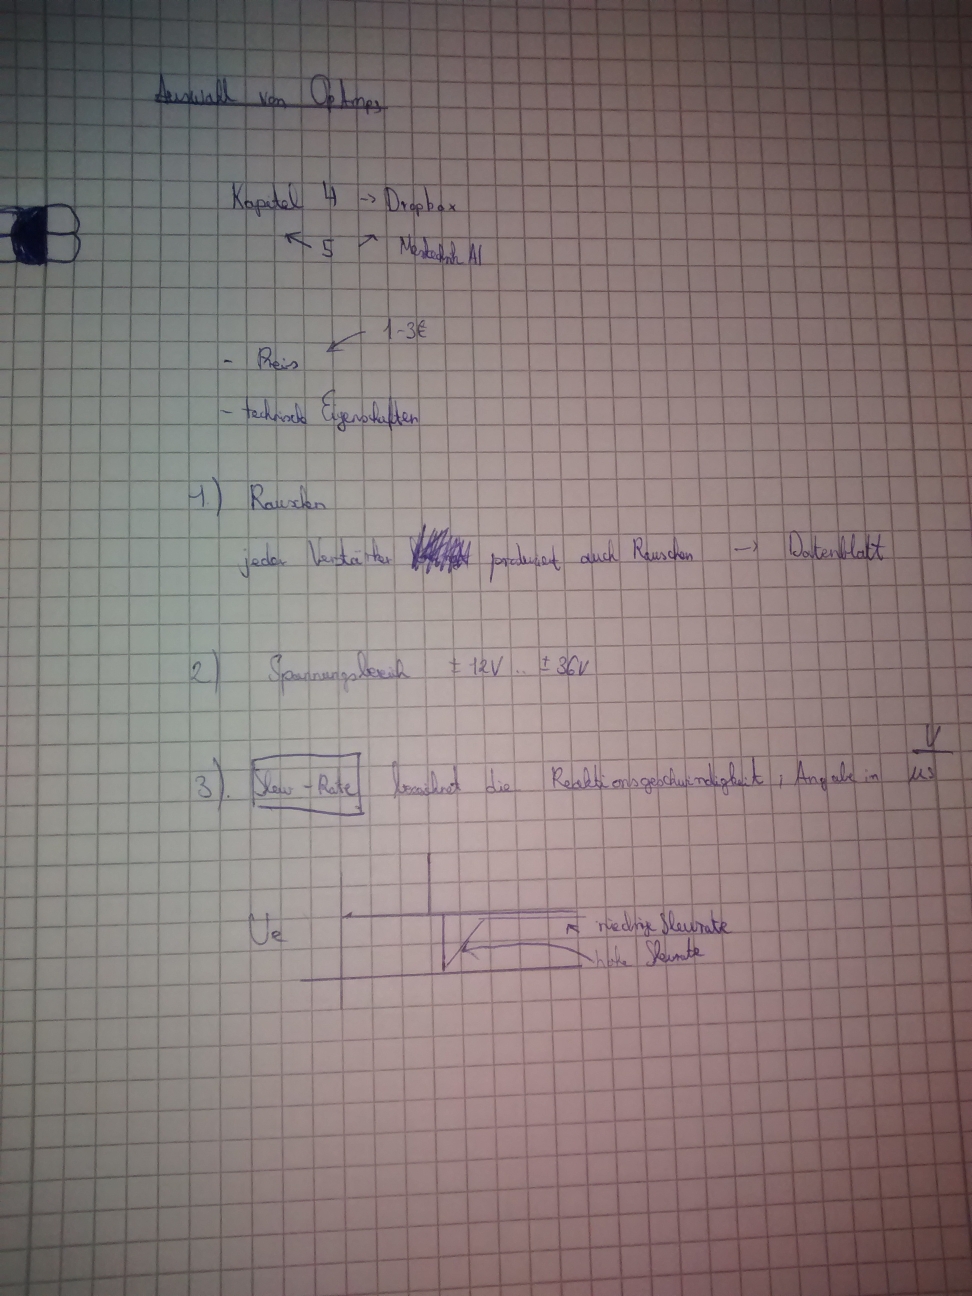 Auswahl von OpAmps
Kapitel 4 -> Dropbox
5
- Preis 1-3€
- technische Eigenschaften
1.) Rauschen
jeder Verstärker produziert auch Rauschen -> Datenblatt
2.) Spannungsbereich ± 12V .. ± 36V
3.) Slew-Rate bezeichnet die Reaktionsgeschwindigkeit, Angabe in V/µs
Ue
niedrige Slewrate
hohe Slewrate